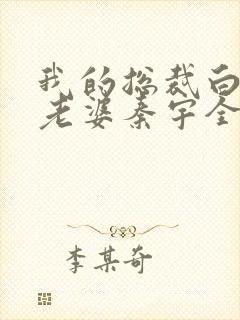 我的总裁白
老婆秦宇全
李某奇